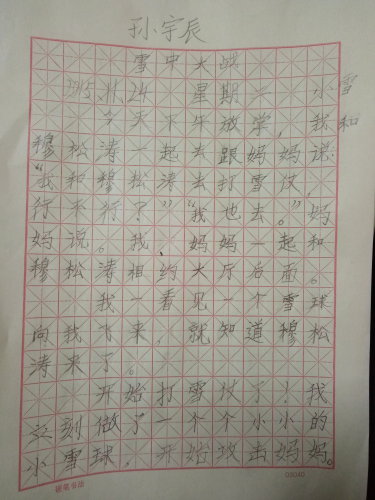 孙宇辰
雪中大战
2015.11.24 星期二 小雪
今天下午放学,我和
穆松涛一起去跟妈妈说:
“我和穆松涛去打雪仗,
行不行了”“我也去。”妈
妈说。我、妈妈一起和
穆松涛相约大厅后面。
我一看见一个雪球
向我飞来,就知道穆松
涛来了。
开始打雪仗了!我
立刻做了一个个小小的
小雪球,开始攻击妈妈。
硬笔书法